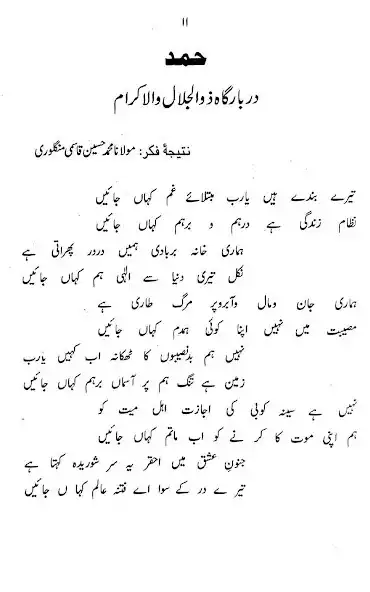 ۱۱
حمد
دربارگاہ ذوالجلال والاکرام
نتیجۂ فکر: مولانا محمد حسین قاسمی منگلوری
تیرے بندے ہیں یارب مبتلائے غم کہاں جائیں
نظام زندگی ہے درہم و برہم کہاں جائیں
ہماری خانہ بربادی ہمیں دردر پھراتی ہے
نکل تیری دنیا سے الٰہی ہم کہاں جائیں
ہماری جان ومال وآبروپر مرگ طاری ہے
مصیبت میں نہیں اپنا کوئی ہمدم کہاں جائیں
نہیں ہم بدنصیبوں کا ٹھکانہ اب کہیں یارب
زمین ہے تنگ ہم پر آسماں برہم کہاں جائیں
نہیں ہے سینہ کوبی کی اجازت اہل میت کو
ہم اپنی موت کا کرنے کو اب ماتم کہاں جائیں
جنون عشق میں احقر یہ سر شوریدہ کہتا ہے
تیرے در کے سوا اے فتنہ عالم کہاں جائیں